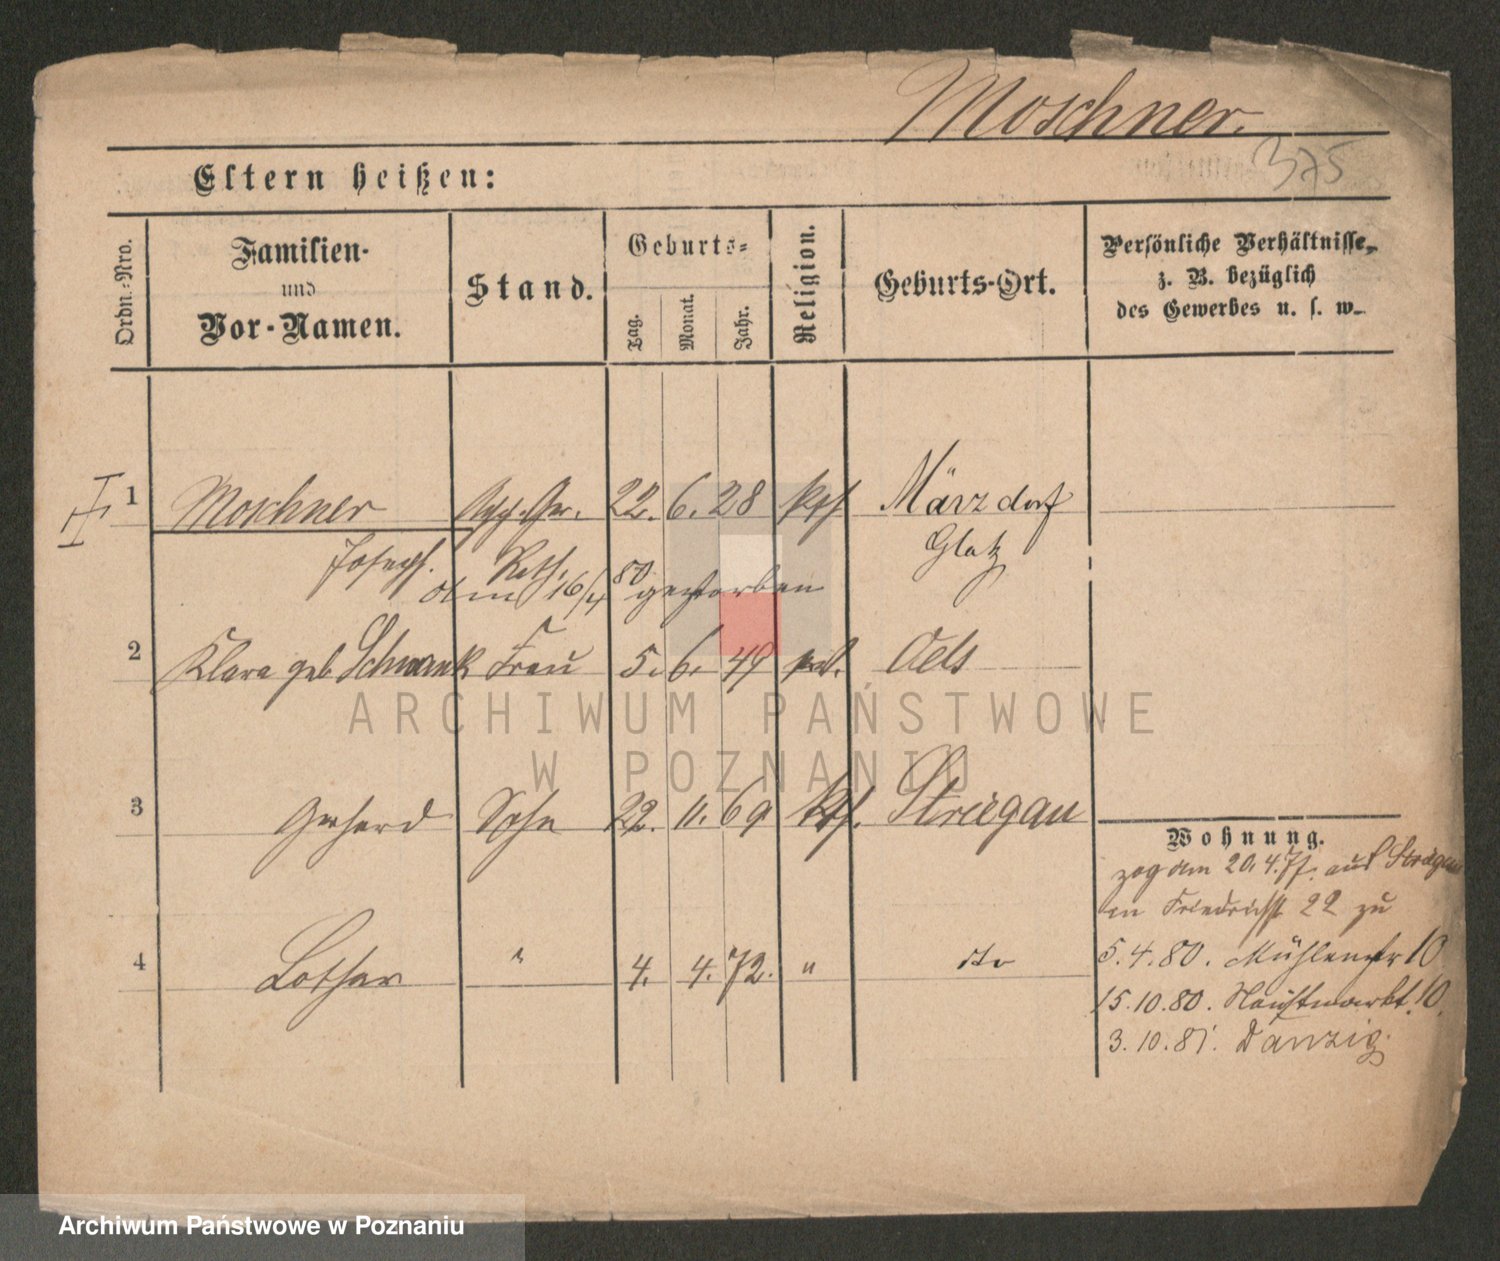 Moschner.
375
Eltern heißen:
Ordn.-Nro.
Familien-
und
Vor-Namen.
Stand.
Geburts-
Tag.
Monat.
Jahr.
Religion.
Geburts-Ort.
Persönliche Verhältnisse,
z. B. bezüglich
des Gewerbes u. s. w.
1 Moschner App. Ger. 22. 6. 28 kth Märzdorf
Joseph. Rath. Glatz
am 16/4 80 gestorben
2 Klara geb Schwank Frau 5. 6. 49 Oels
3 Gerhard Sohn 22. 11. 69 kth. Striegau
Wohnung.
zog am 20.4.77. aus Striegau
in Friedrichst 22 zu
4 Lothar " 4. 4. 72. " dto
5.4.80. Mühlenstr 10
15.10.80. Neustmarkt. 10.
3.10.81. Danzig.
ARCHIWUM PAŃSTWOWE
W POZNANIU
Archiwum Państwowe w Poznaniu